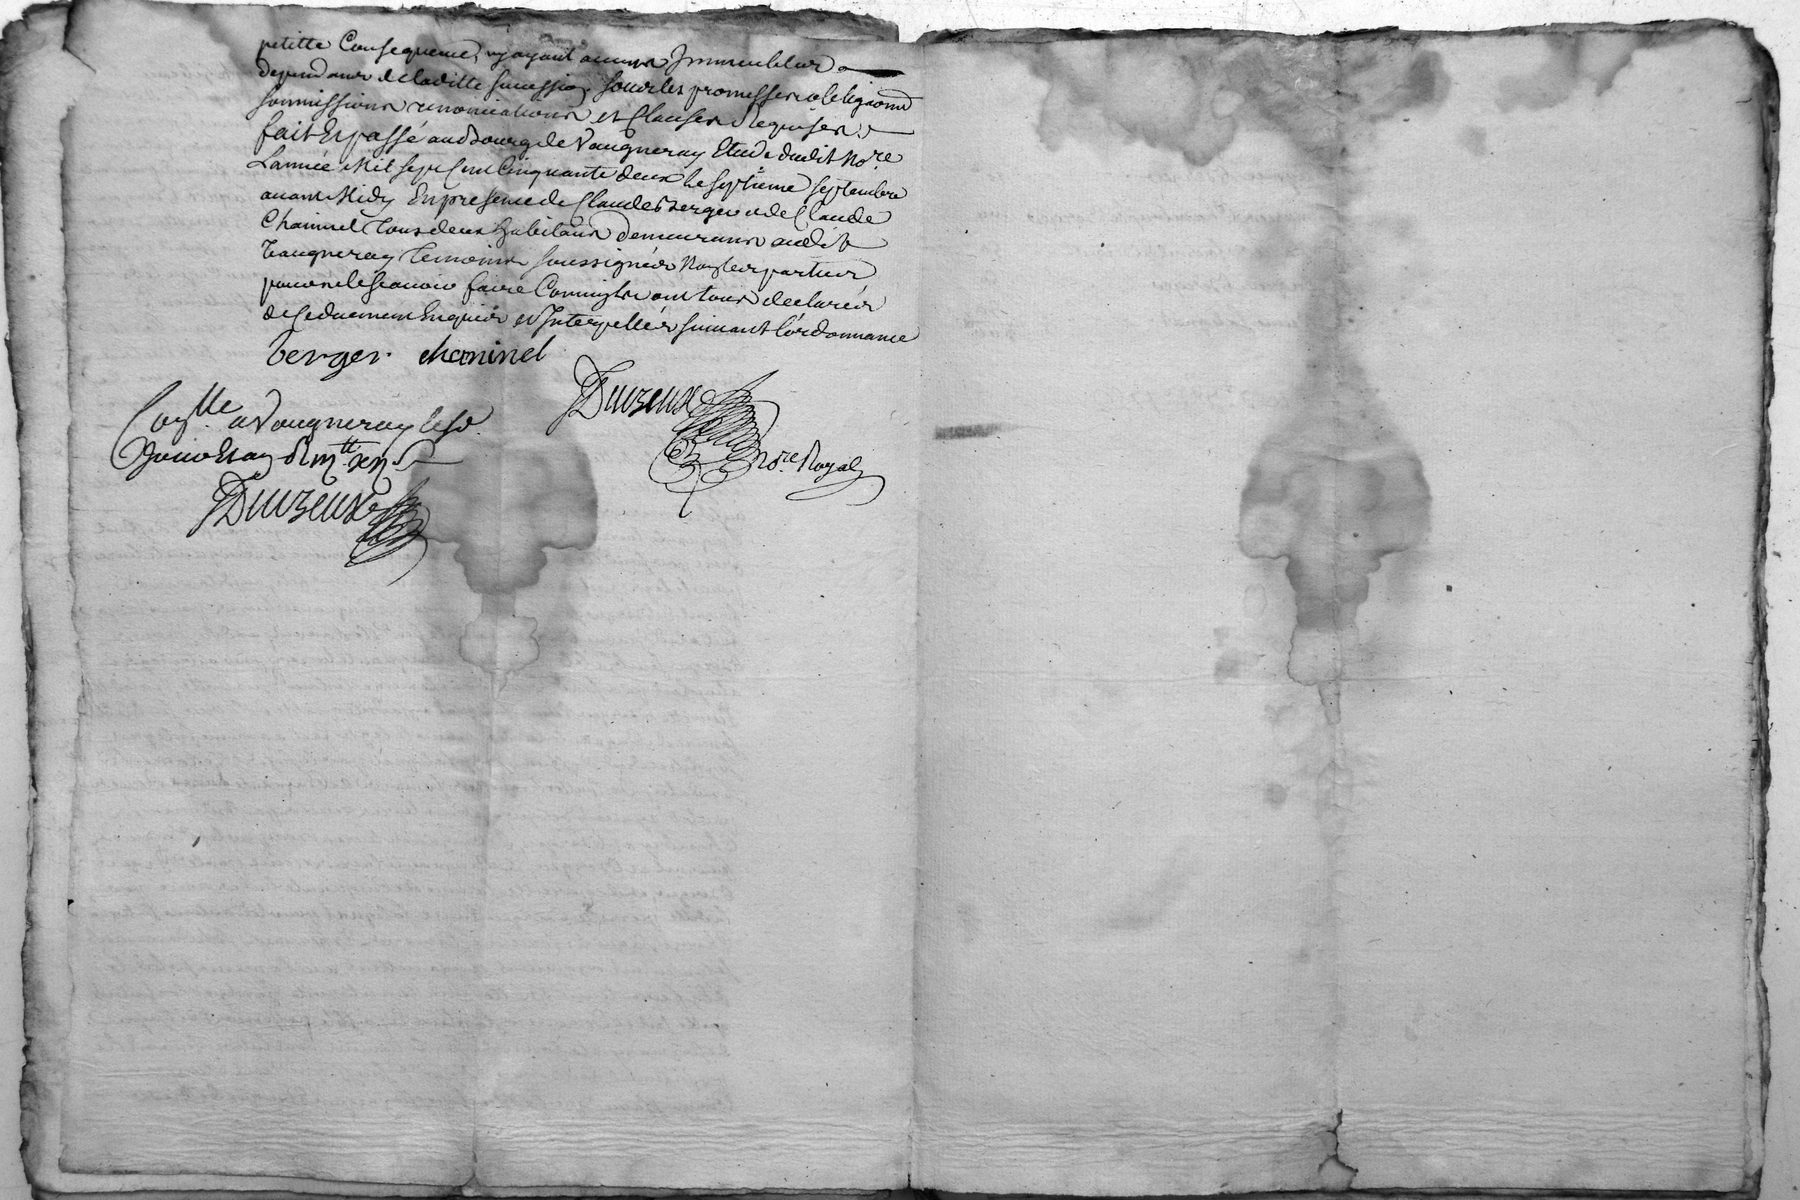 petitte Consequence, ny ayant aucuns Immeubles
dependans de laditte succession, sous les promesses obligaons
soumissions renonciations et Clauses Requises.
fait Et passé au Bourg de Vaugneray Etude dudit No.re
L'année Mil sept Cent Cinquante deux le septieme septembre
avant Midy En presence de Claude Berger et de Claude
Chaninel Tous deux habitans demeurans audit
Vaugneray Temoins soussignés Non les parties
pour ne le scavoir faire Comm'ils ont tous declarés
de ce duement Enquis et Interpellés suivant l'ordonnance
berger chaninel
Duizeux
No.re Royal
Con.lle a Vaugneray le
Duizeux